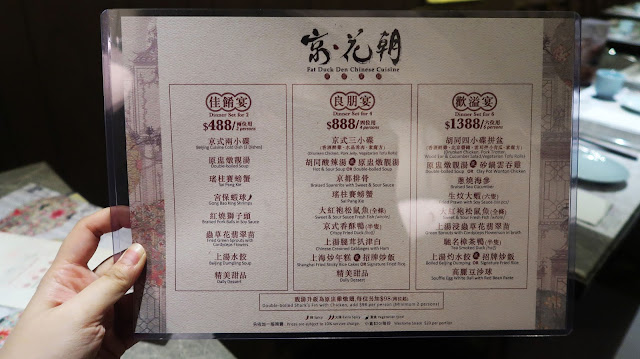 京·花朝
Fat Duck Den Chinese Cuisine
佳餚宴
Dinner Set for 2
$488/兩位用
2 persons
京式兩小碟
Beijing Cuisine Cold Dish (2 Dishes)
原盅燉靚湯
Double-boiled Soup
瑤柱賽螃蟹
Sai Pang Xie
宮保蝦球
Gong Bao King Shrimps
紅燒獅子頭
Braised Pork Balls in Soy Sauce
蟲草花翡翠苗
Fried Green Sprouts with
Cordyceps Flowers
上湯水餃
Beijing Dumpling Soup
精美甜品
Daily Dessert
良朋宴
Dinner Set for 4
$888/四位用
4 persons
京式三小碟
胡同酸辣湯 或 原盅燉靚湯
Hot & Sour Soup OR Double-boiled Soup
京都排骨
Braised Spareribs with Sweet & Sour Sauce
瑤柱賽螃蟹
Sai Pang Xie
大紅袍松鼠魚(全條)
Sweet & Sour Sauce Fresh Fish (whole)
京式香酥鴨(半隻)
Crispy Fried Duck (half)
上湯腿茸扒津白
Chinese Crowned Cabbages with Ham
上海炒年糕 或 招牌炒飯
Shanghai Fried Sticky Rice Cakes OR Signature Fried Rice
精美甜品
Daily Dessert
歡溢宴
Dinner Set for 6
$1388/六位用
6 persons
胡同四小碟拼盆
原盅燉靚湯 或 砂鍋雲吞雞
Double-boiled Soup OR Clay Pot Wanton Chicken
蔥燒海參
Braised Sea Cucumber
生炆大蝦(六隻)
大紅袍松鼠魚(全條)
上湯浸蟲草花翡翠苗
Green Sprouts with Cordyceps Flowers in Broth
馳名樟茶鴨(半隻)
Tea Smoked Duck (half)
上湯灼水餃 或 招牌炒飯
Boiled Beijing Dumpling OR Signature Fried Rice
高麗豆沙球
Souffle Egg White Ball with Red Bean Paste
Double-boiled Shark's Fin with Chicken, add $98 per person (Minimum 2 persons)
另收加一服務費 Prices are subject to 10% service charge